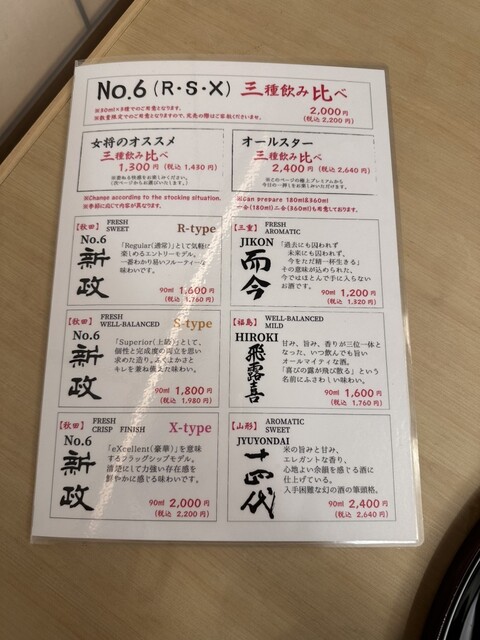 No.6 (R・S・X) 三種飲み比べ
※30ml×3種でのご用意となります。
※数量限定でのご用意となりますので、完売の際はご容赦くださいませ。
2,000円
(税込 2,200円)
女将のオススメ
三種飲み比べ
1,300円 (税込 1,430円)
オールスター
三種飲み比べ
2,400円 (税込 2,640円)
※このページの極上プレミアムから
今日の一杯をお楽しみいただけます。
※Change according to the stocking situation.
※季節に応じて内容が異なります。
※Can prepare 180ml&360ml
一合(180ml)二合(360ml)も用意しております。
【秋田】 FRESH
SWEET
R-type
No.6
新政
「Regular(通常)」として気軽に
楽しめるエントリーモデル。
一番わかり易いフルーティーな
味わいです。
90ml 1,600円
(税込 1,760円)
【三重】 FRESH
AROMATIC
JIKON
而今
「過去にも囚われず
未来にも囚われず、
今をただ精一杯生きる」
その意味が込められた、
今ではほとんど手に入らない
お酒です。
90ml 1,200円
(税込 1,320円)
【秋田】 FRESH
WELL-BALANCED
S-type
No.6
新政
「Superior(上級)」として、
個性と完成度の両立を思い
求めた造り。ふくよかさと
キレを兼ね備えた味わい。
90ml 1,800円
(税込 1,980円)
【福島】 WELL-BALANCED
MILD
HIROKI
飛露喜
甘み、旨み、香りが三位一体と
なった、いつ飲んでも旨い
オールマイティな酒。
「喜びの露が飛び散る」という
名前にふさわしい味わい。
90ml 1,600円
(税込 1,760円)
【秋田】 FRESH
CRISP FINISH
X-type
No.6
新政
「eXcellent(豪華)」を意味
するフラッグシップモデル。
清楚にして力強い存在感を
鮮やかに感じる味わいです。
90ml 2,000円
(税込 2,200円)
【山形】 AROMATIC
SWEET
JYUYONDAI
十四代
米の旨みと甘み、
エレガントな香り、
心地よい余韻を感じる酒に
仕上げている。
入手困難な幻の酒の筆頭格。
90ml 2,400円
(税込 2,640円)